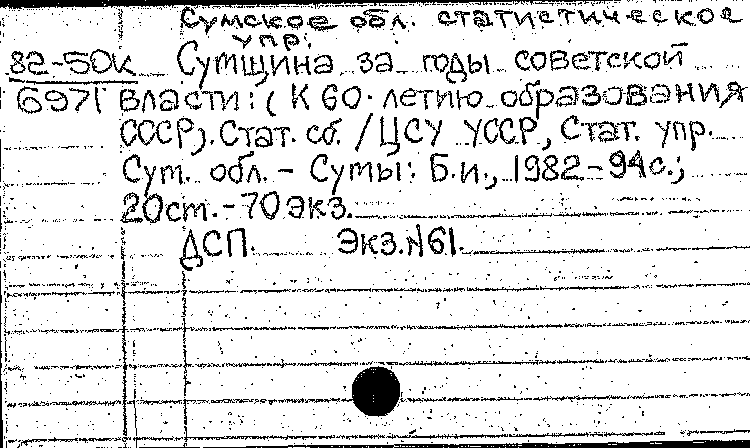 Сумское обл. статистическое
упр.
82-50к Сумщина за годы советской
6971 власти: (К 60-летию образования
СССР). Стат. сб. / ЦСУ УССР, Стат. упр.
Сум. обл. - Сумы: Б.и., 1982 - 94с.;
20см. - 70 экз.
ДСП. Экз.N61.